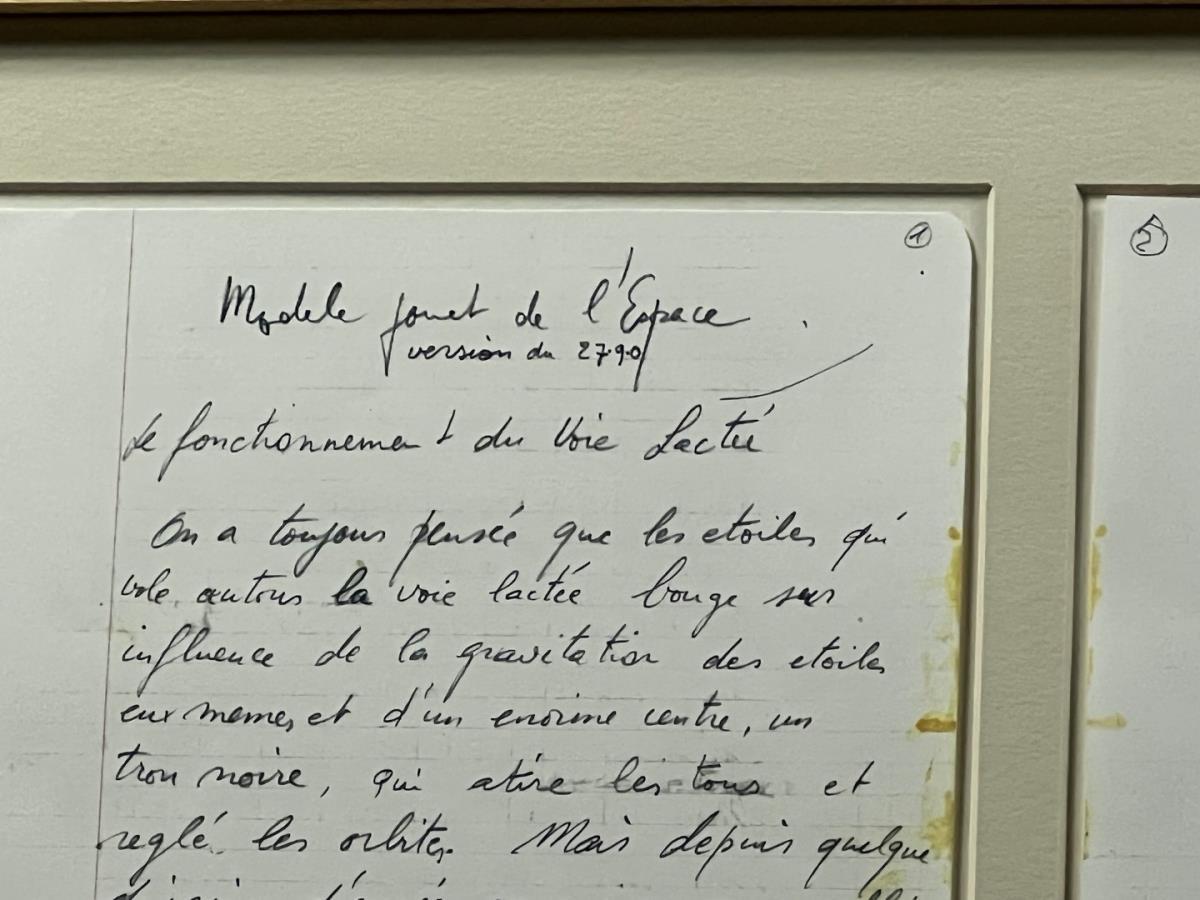 1
2
Modele jouet de l'Espace
version du 27.9.0
Le fonctionnement du Voie Lactée
On a toujous pensée que les etoiles qui
vole autous la voie lactée bouge sur
influence de la gravitation des etoiles
eux memes, et d'un enorime centre, un
trou noire, qui atire les tous et
reglé les orbites. Mais depuis quelque